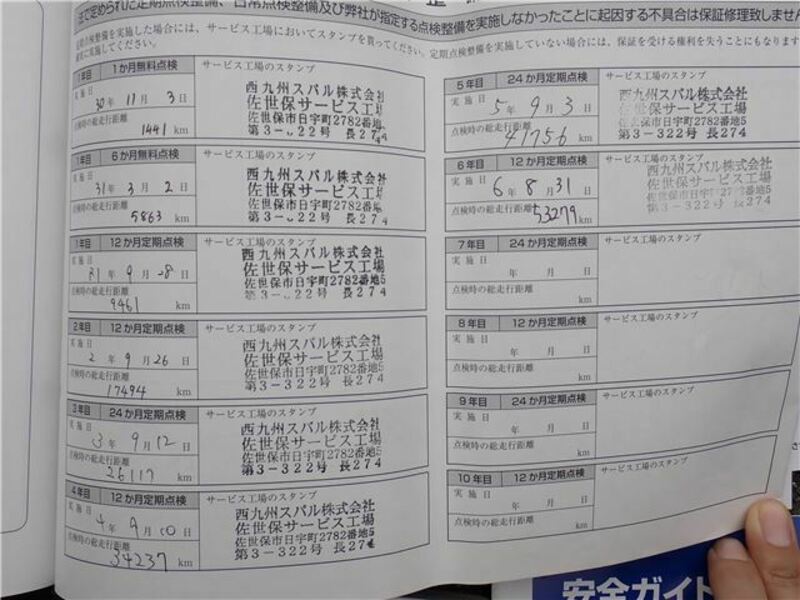 法で定められた定期点検整備、日常点検整備及び弊社が指定する点検整備を実施しなかったことに起因する不具合は保証修理致しません
定期点検整備を実施した場合には、サービス工場においてスタンプを貰ってください。定期点検整備を実施していない場合には、保証を受ける権利を失うことにもなります
実に実施してください。
1年目 1か月無料点検
サービス工場のスタンプ
実施日
30年 11月 3日
点検時の総走行距離
1441 km
西九州スバル株式会社
佐世保サービス工場
佐世保市日宇町2782番地
第3-22号 長274
1年目 6か月無料点検
サービス工場のスタンプ
実施日
31年 3月 2日
点検時の総走行距離
5863 km
西九州スバル株式会社
佐世保サービス工場
佐世保市日宇町2782番地
第3-22号 長274
1年目 12か月定期点検
サービス工場のスタンプ
実施日
R1年 9月 28日
点検時の総走行距離
9461 km
西九州スバル株式会社
佐世保サービス工場
佐世保市日宇町2782番地5
第3-22号 長274
2年目 12か月定期点検
サービス工場のスタンプ
実施日
2年 9月 26日
点検時の総走行距離
17494 km
西九州スバル株式会社
佐世保サービス工場
佐世保市日宇町2782番地5
第3-322号 長274
3年目 24か月定期点検
サービス工場のスタンプ
実施日
3年 9月 12日
点検時の総走行距離
26117 km
西九州スバル株式会社
佐世保サービス工場
佐世保市日宇町2782番地5
第3-322号 長274
4年目 12か月定期点検
サービス工場のスタンプ
実施日
4年 9月 10日
点検時の総走行距離
34237 km
西九州スバル株式会社
佐世保サービス工場
佐世保市日宇町2782番地5
第3-322号 長274
5年目 24か月定期点検
サービス工場のスタンプ
実施日
5年 9月 3日
点検時の総走行距離
41756 km
西九州スバル株式会社
佐世保サービス工場
佐世保市日宇町2782番地5
第3-322号 長274
6年目 12か月定期点検
サービス工場のスタンプ
実施日
6年 8月 31日
点検時の総走行距離
53279 km
西九州スバル株式会社
佐世保サービス工場
佐世保市日宇町2782番地5
第3-322号 長274
7年目 24か月定期点検
サービス工場のスタンプ
実施日
年 月 日
点検時の総走行距離
km
8年目 12か月定期点検
サービス工場のスタンプ
実施日
年 月 日
点検時の総走行距離
km
9年目 24か月定期点検
サービス工場のスタンプ
実施日
年 月 日
点検時の総走行距離
km
10年目 12か月定期点検
サービス工場のスタンプ
実施日
年 月 日
点検時の総走行距離
km
安全ガイド